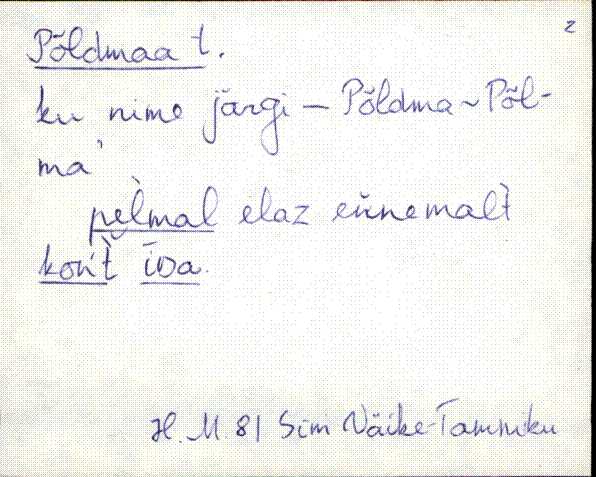 2
Põldmaa t.
ku nime järgi – Põldma ~ Põl-
ma'
pèlmal elaz eùnemalt
końt̀ īva.
H. M. 81 Simi Väike-Tammiku